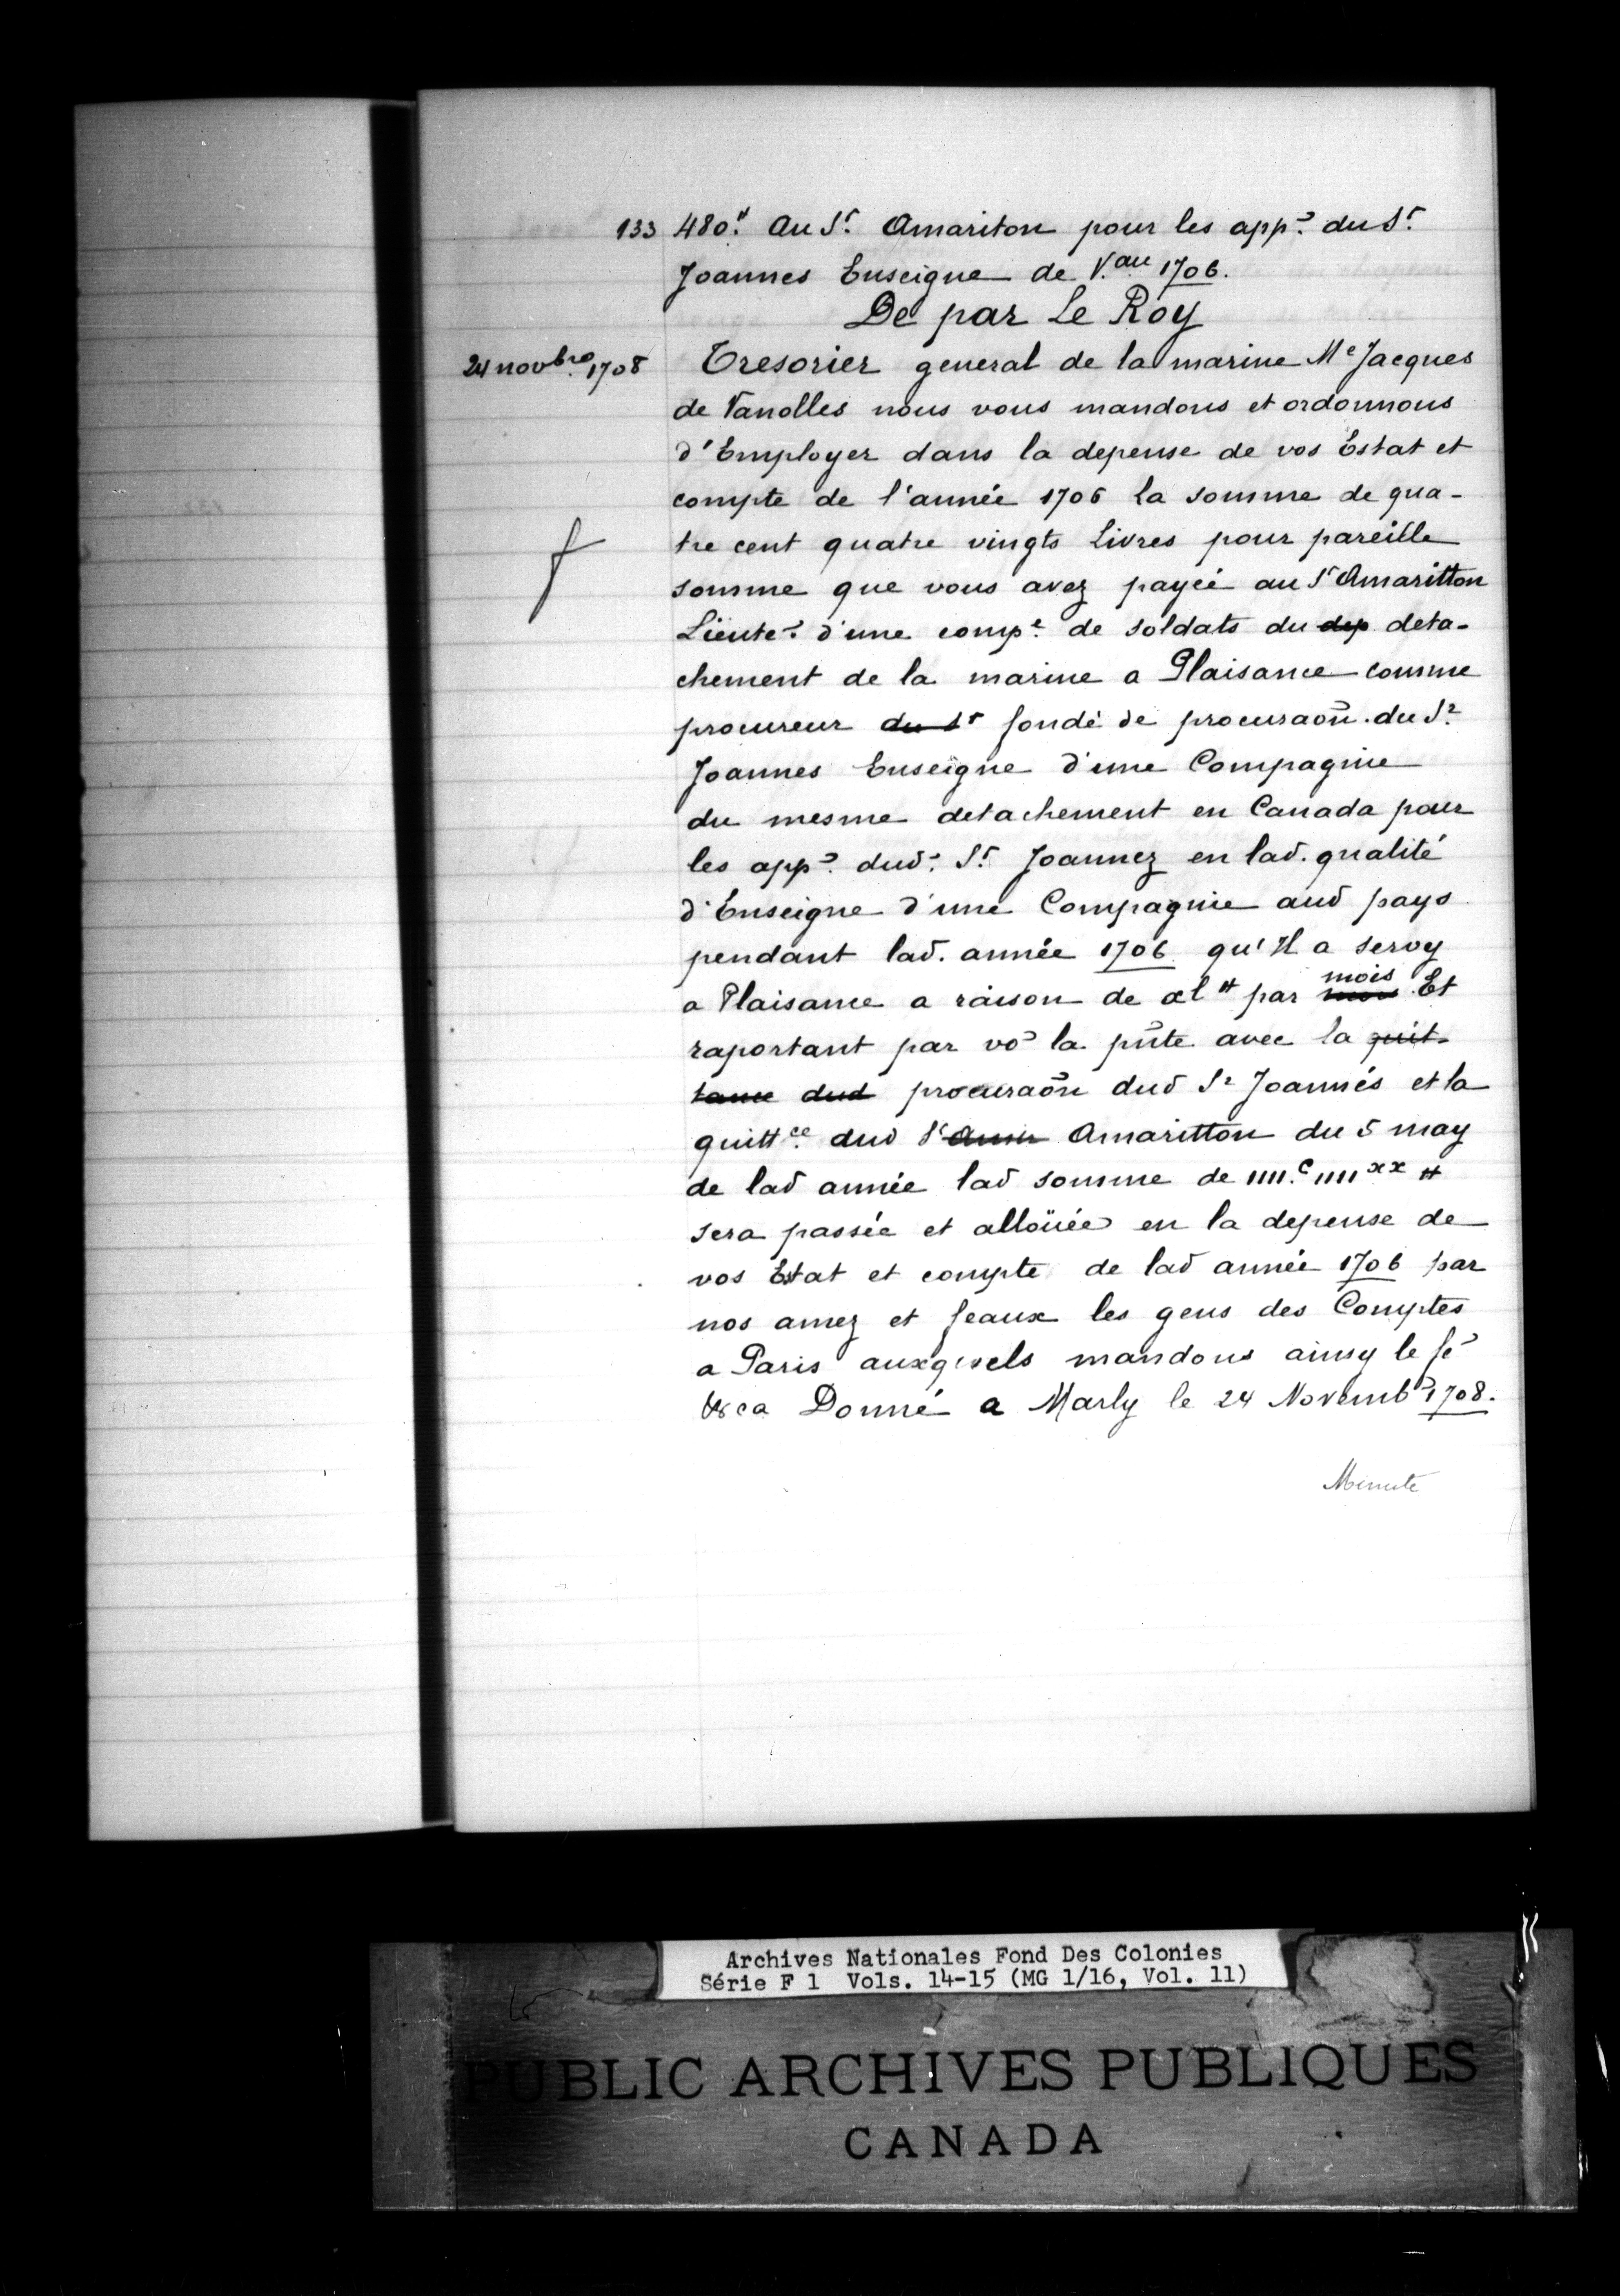 133 480ᵗᵗ. Au Sʳ. Amariton pour les app.ˢ du Sʳ.
Joannes Enseigne de l'année 1706.
De par Le Roy
24 novbʳᵉ 1708 Tresorier general de la marine Mᵉ Jacques
de Vanolles nous vous mandons et ordonnons
d'Employer dans la depense de vos Estat et
compte de l'année 1706 la somme de qua-
tre cent quatre vingts Livres pour pareille
f
somme que vous avez payée au Sʳ Amaritton
Lieutᵉ.ᵗ d'une compᵉ. de soldats du dep deta-
chement de la marine a Plaisance comme
procureur du Sʳ fondé de procuraõn. du Sʳ.
Joannes Enseigne d'une Compagnie
du mesme detachement en Canada pour
les app.ˢ dud. Sʳ. Joannez en lad. qualité
d'Enseigne d'une Compagnie aud pays
pendant lad. année 1706 qu'Il a servy
a Plaisance a raison de xlᵗᵗ par mois mois Et
raportant par voˢ la pñte avec la quit-
tance dud procuraõn dud Sʳ Joannés et la
quittᶜᵉ. dud Sʳ Amaritton du 5 may
de lad année lad somme de IIII.ᶜ IIIIˣˣ ᵗᵗ
sera passée et alloüée en la depense de
vos Estat et compte de lad année 1706 par
nos amez et feaux les gens des Comptes
a Paris auxquels mandons ainsy le fᵉ
&ca Donné a Marly le 24 Novembᵉ 1708.
Minute
Archives Nationales Fond Des Colonies
Série F 1 Vols. 14-15 (MG 1/16, Vol. 11)
PUBLIC ARCHIVES PUBLIQUES
CANADA